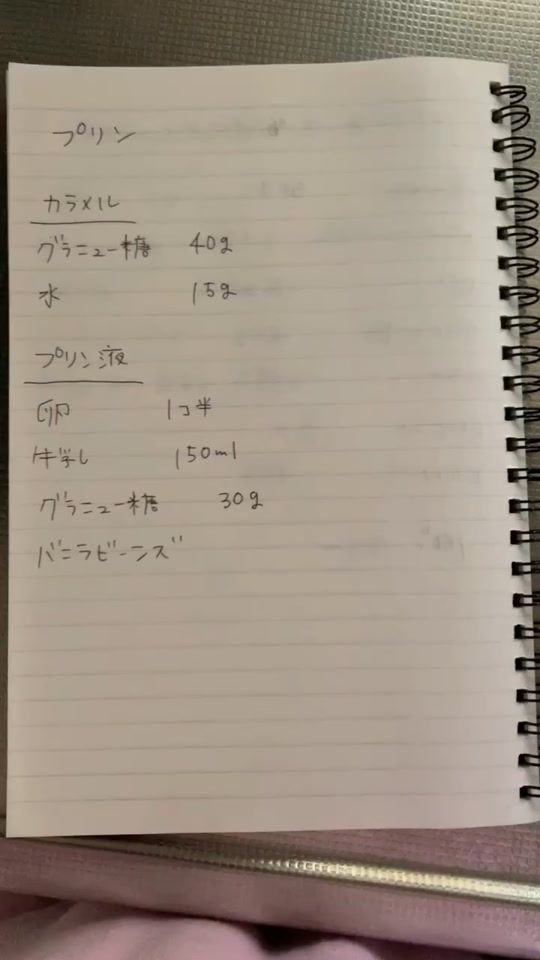 プリン
カラメル
グラニュー糖 40g
水 15g
プリン液
卵 1コ半
牛乳 150ml
グラニュー糖 30g
バニラビーンズ